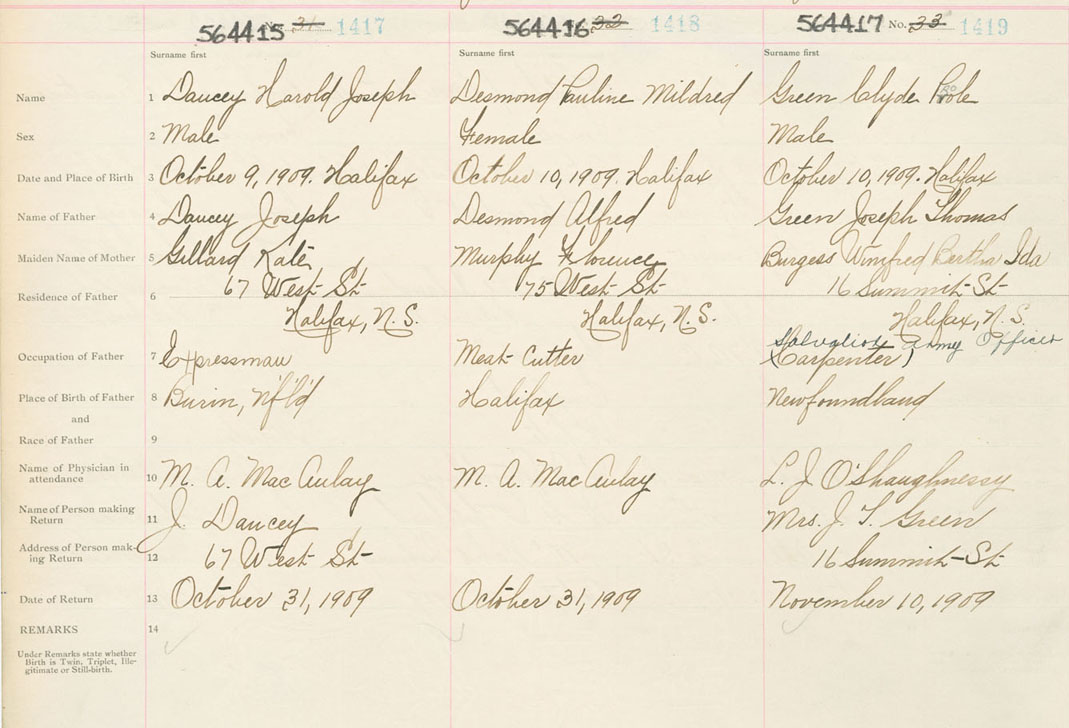 564415 No. 31 1417 564416 32 1418 564417 No. 33 1419
Surname first Surname first Surname first
Name 1 Daucey Harold Joseph Desmond Pauline Mildred Green Clyde Poole
Sex 2 Male Female Male
Date and Place of Birth 3 October 9, 1909. Halifax October 10, 1909. Halifax October 10, 1909. Halifax
Name of Father 4 Daucey Joseph Desmond Alfred Green Joseph Thomas
Maiden Name of Mother 5 Gillard Kate Murphy Florence Burgess Winifred Bertha Ida
67 West St 75 West St 16 Summit St
Residence of Father 6
Halifax, N.S. Halifax, N.S. Halifax, N.S.
Salvation Army Officer
Occupation of Father 7 Expressman Meat Cutter (Carpenter)
Place of Birth of Father 8 Burin, Nf'l'd Halifax Newfoundland
and
Race of Father 9
Name of Physician in
attendance 10 M. A. MacAulay M. A. MacAulay L. J O'Shaughnessy
Name of Person making
Return 11 J. Daucey Mrs. J. T. Green
Address of Person mak-
ing Return 12 67 West St 16 Summit St
Date of Return 13 October 31, 1909 October 31, 1909 November 10, 1909
REMARKS 14
Under Remarks state whether
Birth is Twin, Triplet, Ille-
gitimate or Still-birth.